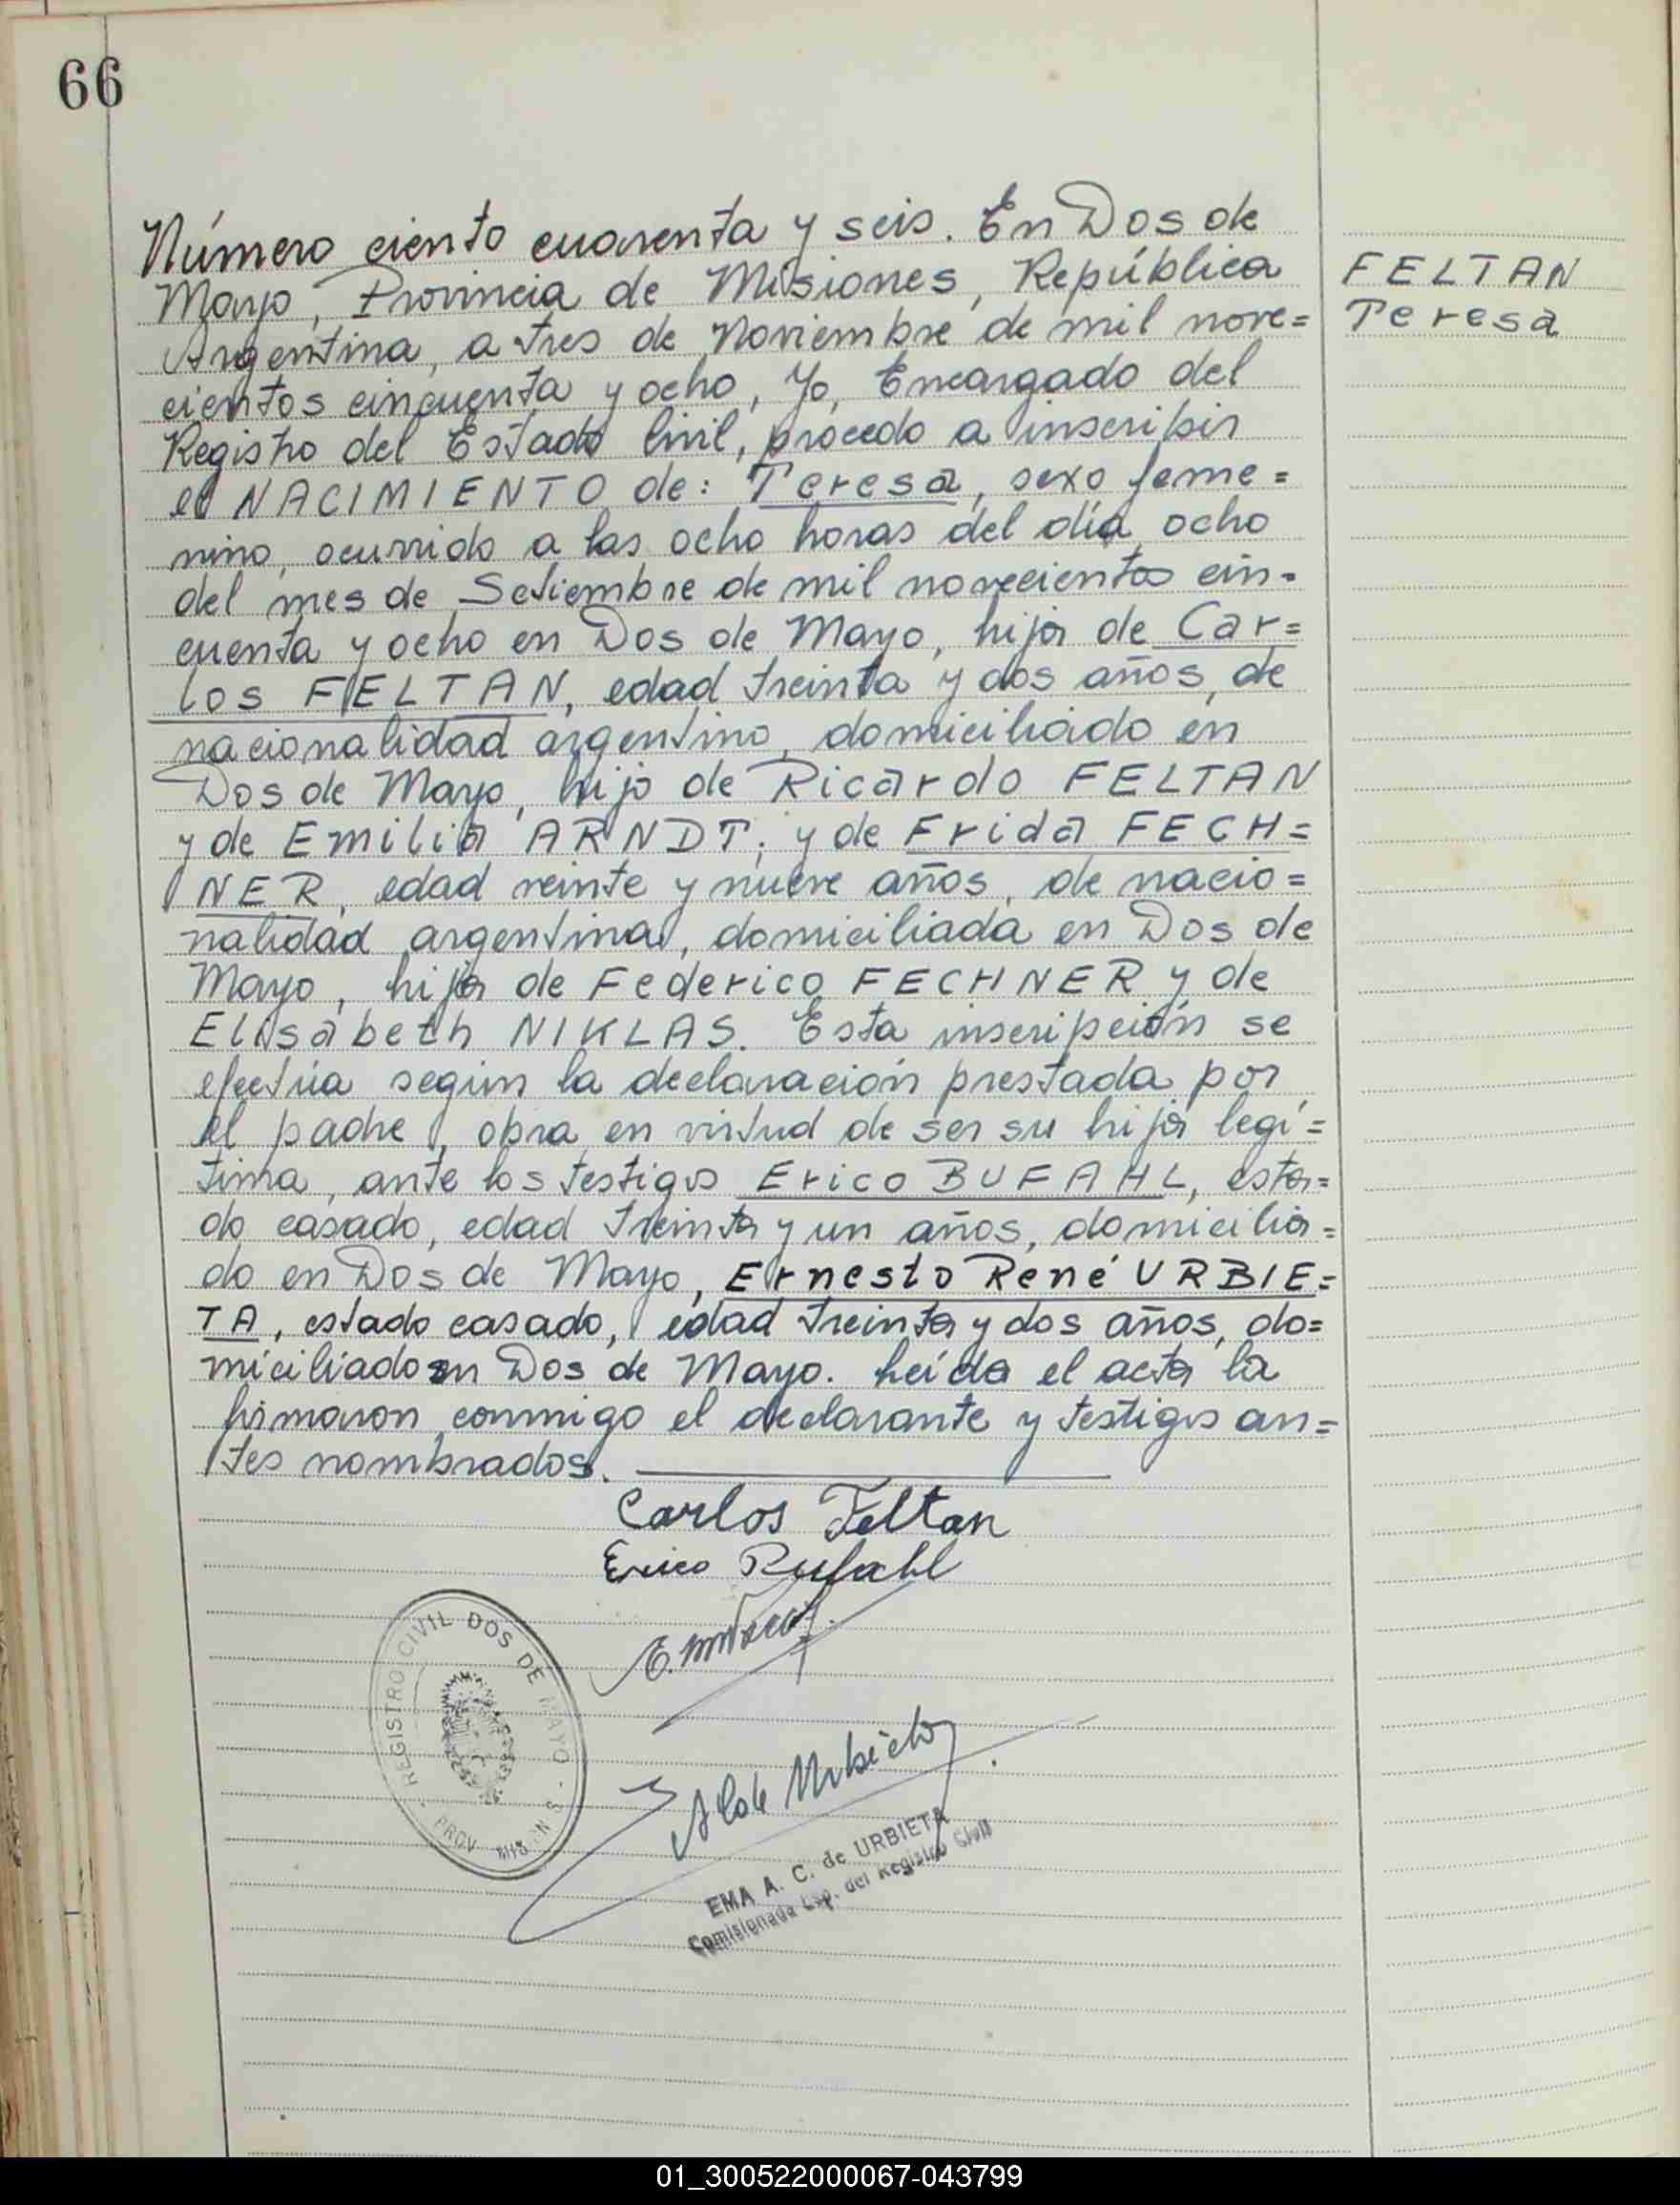 66
Número ciento cuarenta y seis. En Dos de
Mayo, Provincia de Misiones, República
Argentina, a tres de Noviembre de mil nove=
cientos cincuenta y ocho, Yo, Encargado del
Registro del Estado Civil, procedo a inscribir
el NACIMIENTO de: Teresa, sexo feme=
nino, ocurrido a las ocho horas del día ocho
del mes de Setiembre de mil novecientos cin=
cuenta y ocho en Dos de Mayo, hija de Car=
los FELTAN, edad treinta y dos años, de
nacionalidad argentino, domiciliado en
Dos de Mayo, hijo de Ricardo FELTAN
y de Emilia ARNDT; y de Frida FECH=
NER, edad veinte y nueve años, de nacio=
nalidad argentina, domiciliada en Dos de
Mayo, hija de Federico FECHNER y de
Elisabeth NIKLAS. Esta inscripción se
efectúa según la declaración prestada por
el padre, obra en virtud de ser su hija legí=
tima, ante los testigos Erico BUFAHL, esta=
do casado, edad treinta y un años, domicilia=
do en Dos de Mayo, Ernesto René URBIE=
TA, estado casado, edad treinta y dos años, do=
miciliado en Dos de Mayo. Leída el acta la
firmaron conmigo el declarante y testigos an=
tes nombrados.
FELTAN
Teresa
Carlos Feltan
Erico Bufahl
REGISTRO CIVIL DOS DE MAYO
PROV. MISIONES
EMA A. C. de URBIETA
Comisionada Esp. del Registro Civil
01_300522000067-043799